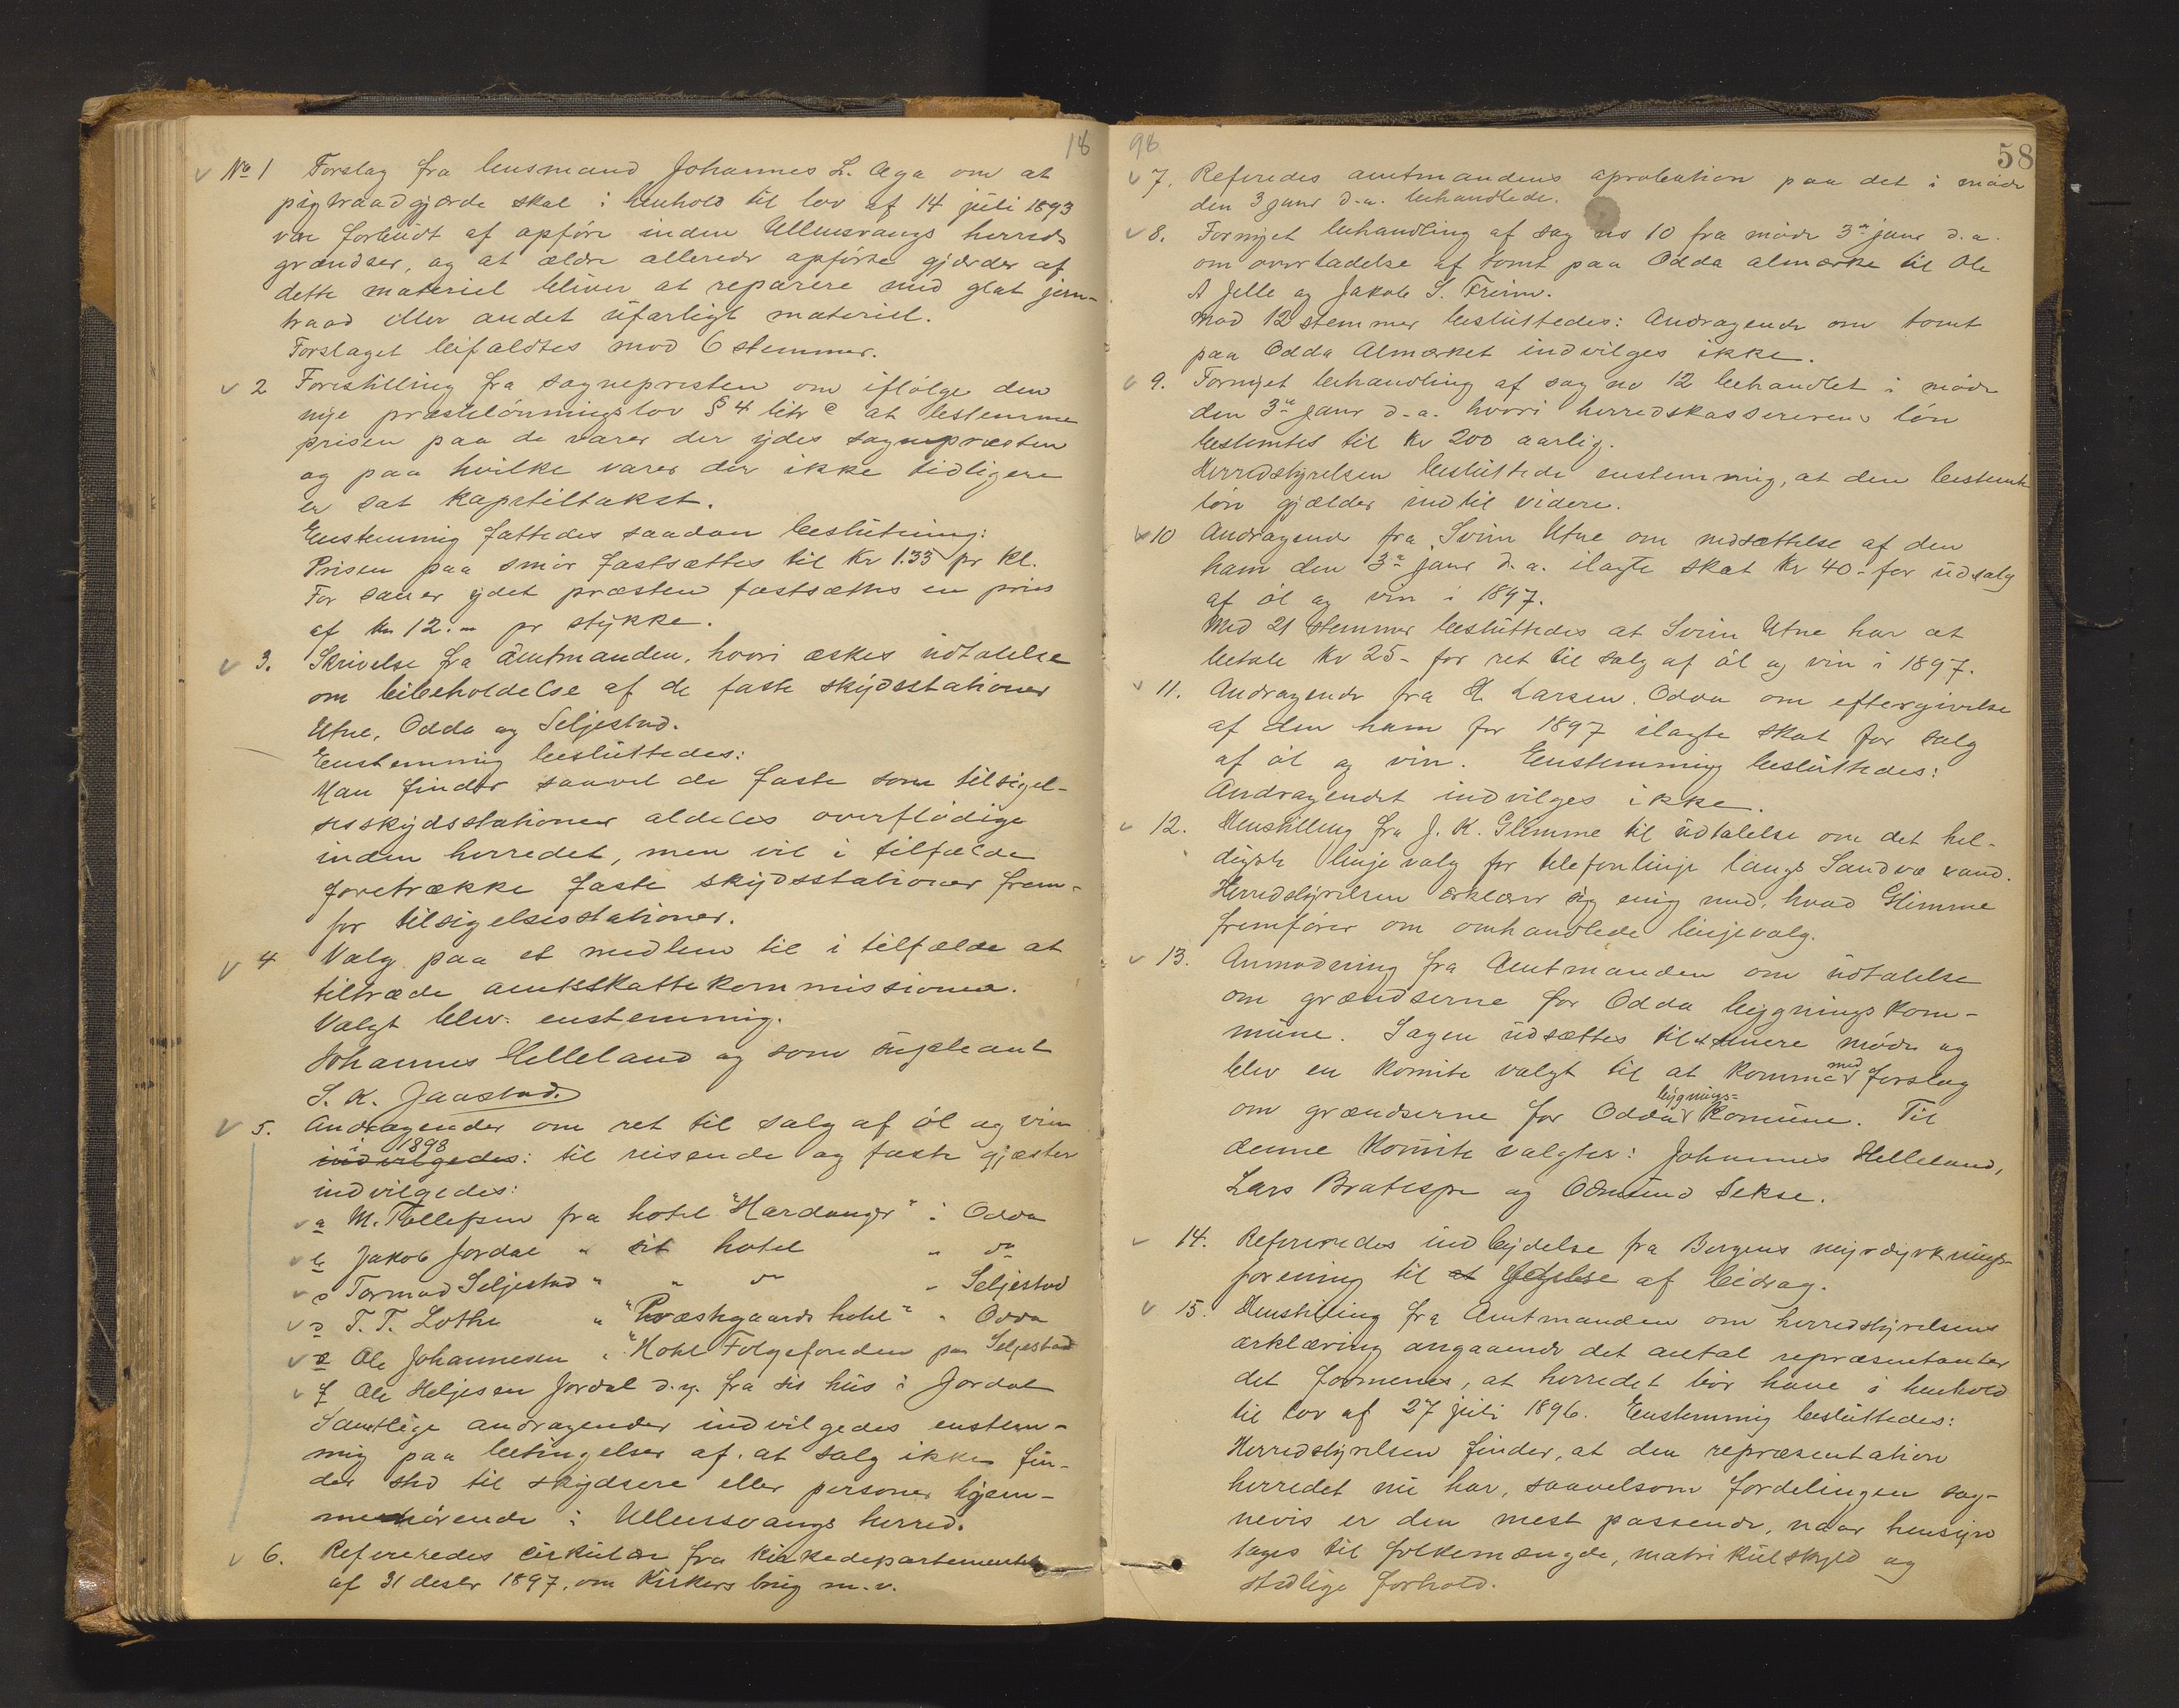 18
No 1 Forslag fra lensmand Johannes L. Aga om at
pigtraadgjærde skal i henhold til lov af 14 juli 1893
være forbudt af opføre inden Ullensvangs herreds
grændser, og at ældre allerede opførte gjærder af
dette materiel bliver at reparere med glat jern-
traad eller andet ufarligt materiel.
Forslaget bifaldtes mod 6 stemmer.
2 Forestilling fra sognepresten om ifølge den
nye præstelønningslov § 4 litr c at bestemme
prisen paa de varer der ydes sognepræsten
og paa hvilke varer der ikke tidligere
er sat kapiteltakst.
Enstemmig fattedes saadan beslutning:
Prisen paa smør fastsættes til Kr 1.33 pr kl.
For sauer ydet præsten fastsættes en pris
af Kr 12.- pr stykke.
3. Skrivelse fra amtmanden, hvori æskes udtalelse
om bibeholdelse af de faste skydsstationer
Utne, Odda og Seljestad.
Enstemmig besluttedes:
Man finder saavel de faste som tilsigel-
sesskydsstationer aldeles overflødige
inden herredet, men vil i tilfælde
foretrække faste skydsstationer frem-
for tilsigelsesstationer.
4 Valg paa et medlem til i tilfælde at
tiltræde amtsskattekommissionen.
Valgt blev enstemmig.
Johannes Helleland og som supleant
S. K. Jaastad.
5. Andragender om ret til salg af øl og vin
i 1898
indvilgedes: til reisende og faste gjæster
indvilgedes:
a M. Tollefsen fra hotel "Hardanger" i Odda
b Jakob Jordal " sit hotel " do
c Tormod Seljestad " " do " Seljestad
d T. T. Lothe " "Præstegaards hotel" " Odda
e Ole Johannesen " "Hotel Folgefonden paa Seljestad
f Ole Heljesen Jordal d.y. fra sit hus i Jordal
Samtlige andragender indvilgedes enstem-
mig paa betingelser af. at salg ikke fin-
der sted til skydsere eller personer hjem-
mehørende i Ullensvangs herred.
6. Refereredes cirkulær fra kirkedepartementet
af 31 desbr 1897, om Kirkers brug m.v.
98
58
7. Referedes amtmandens aprobation paa det i møde
den 3 janr d.a. behandlede.
8. Fornyet behandling af sag no 10 fra møde 3die janr d.a.
om overladelse af tomt paa Odda almærke til Ole
A Jelle og Jakob S. Freim.
Mod 12 stemmer besluttedes: Andragende om tomt
paa Odda Almærket indvilges ikke.
9. Fornyet behandling af sag no 12 behandlet i møde
den 3die janr d.a. hvori herredskassererens løn
bestemtes til Kr 200 aarlig.
Herredstyrelsen besluttede enstemmig, at den bestemte
løn gjælder indtil videre.
10 Andragende fra Svein Utne om nedsættelse af den
ham den 3die janr d.a. ilagte skat Kr 40- for udsalg
af øl og vin i 1897.
Med 21 stemmer besluttedes at Svein Utne har at
betale Kr 25- for ret til salg af øl og vin i 1897.
11. Andragende fra H Larsen. Odda om eftergivelse
af den ham for 1897 ilagte skat for salg
af øl og vin. Enstemmig besluttedes:
Andragendet indvilges ikke.
12. Henstilling fra J. K. Glimme til udtalelse om det hel-
digste linjevalg for telefonlinje langs Sandvæ vand.
Herredstyrelsen erklærer sig enig med, hvad Glimme
fremfører om omhandlede linjevalg.
13. Anmodning fra Amtmanden om udtalelse
om grændserne for Odda bygningskom-
mune. Sagen udsættes til senere møde og
blev en komite valgt til at komme med forslag
om grændserne for Odda bygnings- komune. Til
denne komite valgtes: Johannes Helleland,
Lars Bratespe og Odmund Sekse.
14. Refereredes indbydelse fra Bergens myrdyrknings-
forening til at ydelse af bidrag.
15. Henstilling fra Amtmanden om herredstyrelsens
erklæring angaaende det antal repræsentanter
det formenes, at herredet bør have i henhold
til lov af 27 juli 1896. Enstemmig besluttedes:
Herredstyrelsen finder, at den repræsentation
herredet nu har, saavelsom fordelingen sog-
nevis er den mest passende, naar hensyn
tages til folkemængde, matrikulskyld og
stedlige forhold.